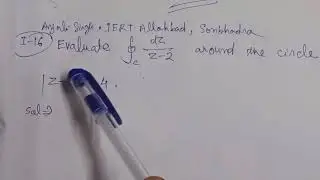 Anjali Singh, IERT Allahabad, Sonbhadra
I-16 Evaluate ∮_C dz/(z-2) around the circle
|z 4.
sol⇒